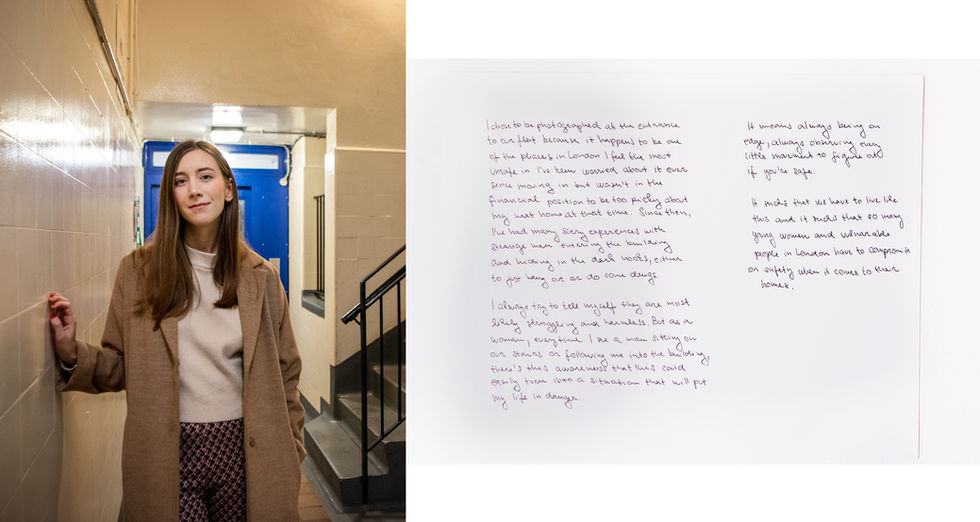 I chose to be photographed at the entrance
to our flat because it happens to be one
of the places in London I feel the most
unsafe in. I've been worried about it ever
sense moving in but wasn't in the
financial position to be too picky about
my next home at that time. Since then,
I've had many scary experiences with
strange men entering the building
and hiding in the dark nooks, either
to just hang out or do some drugs.
I always try to tell myself they are most
likely struggling and harmless. But as a
woman, everytime I see a man sitting on
our stairs or following me into the building,
there's this awareness that this could
easily turn into a situation that will put
my life in danger.
It means always being on
edge, always observing every
little movement to figure out
if you're safe.
It sucks that we have to live like
this and it sucks that so many
young women and vulnerable
people in London have to compromise
on safety when it comes to their
homes.